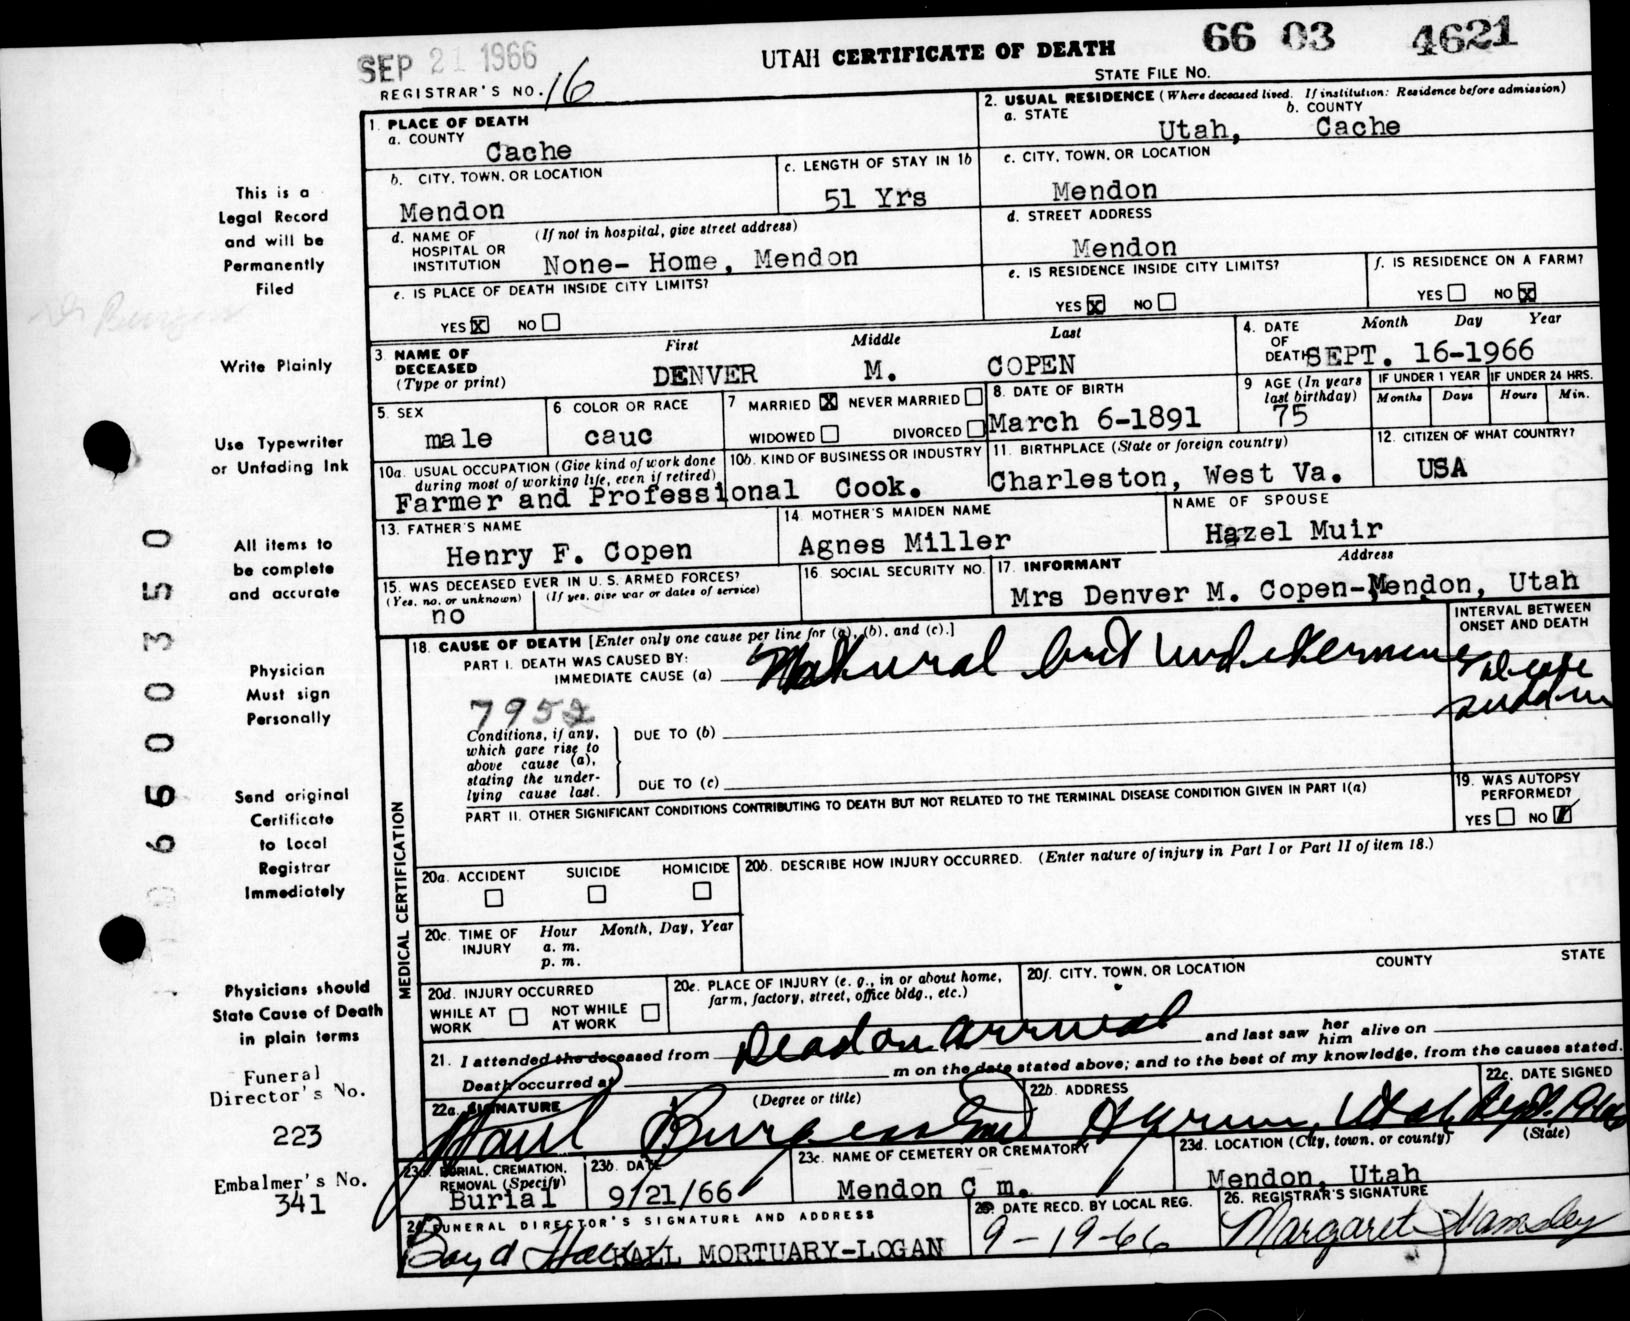 SEP 21 1966
UTAH CERTIFICATE OF DEATH
66 03 4621
STATE FILE NO.
REGISTRAR'S NO. 16
This is a
Legal Record
and will be
Permanently
Filed
Write Plainly
Use Typewriter
or Unfading Ink
All items to
be complete
and accurate
Physician
Must sign
Personally
Send original
Certificate
to Local
Registrar
Immediately
Physicians should
State Cause of Death
in plain terms
Funeral
Director's No.
223
Embalmer's No.
341
06600350
1. PLACE OF DEATH
a. COUNTY
Cache
2. USUAL RESIDENCE (Where deceased lived. If institution: Residence before admission)
a. STATE b. COUNTY
Utah, Cache
b. CITY, TOWN, OR LOCATION
Mendon
c. LENGTH OF STAY IN 1b
51 Yrs
c. CITY, TOWN, OR LOCATION
Mendon
d. NAME OF HOSPITAL OR INSTITUTION (If not in hospital, give street address)
None- Home, Mendon
d. STREET ADDRESS
Mendon
e. IS PLACE OF DEATH INSIDE CITY LIMITS?
YES X NO
e. IS RESIDENCE INSIDE CITY LIMITS?
YES X NO
f. IS RESIDENCE ON A FARM?
YES NO X
3. NAME OF DECEASED (Type or print)
First Middle Last
DENVER M. COPEN
4. DATE OF DEATH Month Day Year
SEPT. 16-1966
5. SEX
male
6 COLOR OR RACE
cauc
7 MARRIED X NEVER MARRIED
WIDOWED DIVORCED
8. DATE OF BIRTH
March 6-1891
9 AGE (In years last birthday)
75
IF UNDER 1 YEAR IF UNDER 24 HRS.
Months Days Hours Min.
10a. USUAL OCCUPATION (Give kind of work done during most of working life, even if retired)
10b. KIND OF BUSINESS OR INDUSTRY
Farmer and Professional Cook.
11. BIRTHPLACE (State or foreign country)
Charleston, West Va.
12. CITIZEN OF WHAT COUNTRY?
USA
13. FATHER'S NAME
Henry F. Copen
14. MOTHER'S MAIDEN NAME
Agnes Miller
NAME OF SPOUSE
Hazel Muir
15. WAS DECEASED EVER IN U. S. ARMED FORCES?
(Yes, no, or unknown) (If yes, give war or dates of service)
no
16. SOCIAL SECURITY NO.
17. INFORMANT Address
Mrs Denver M. Copen-Mendon, Utah
MEDICAL CERTIFICATION
18. CAUSE OF DEATH [Enter only one cause per line for (a), (b), and (c).]
INTERVAL BETWEEN ONSET AND DEATH
PART I. DEATH WAS CAUSED BY:
IMMEDIATE CAUSE (a) Natural but undetermined
sudden
7952
Conditions, if any, which gave rise to above cause (a), stating the underlying cause last.
DUE TO (b)
DUE TO (c)
PART II. OTHER SIGNIFICANT CONDITIONS CONTRIBUTING TO DEATH BUT NOT RELATED TO THE TERMINAL DISEASE CONDITION GIVEN IN PART I(a)
19. WAS AUTOPSY PERFORMED?
YES NO
20a. ACCIDENT SUICIDE HOMICIDE
20b. DESCRIBE HOW INJURY OCCURRED. (Enter nature of injury in Part I or Part II of item 18.)
20c. TIME OF INJURY Hour Month, Day, Year
a. m.
p. m.
20d. INJURY OCCURRED
WHILE AT WORK NOT WHILE AT WORK
20e. PLACE OF INJURY (e. g., in or about home, farm, factory, street, office bldg., etc.)
20f. CITY, TOWN, OR LOCATION COUNTY STATE
21. I attended the deceased from Dead on arrival and last saw her him alive on
Death occurred at m on the date stated above; and to the best of my knowledge, from the causes stated.
22a. SIGNATURE (Degree or title)
Paul Burgess
22b. ADDRESS
Hyrum, Utah
22c. DATE SIGNED
23a. BURIAL, CREMATION, REMOVAL (Specify)
Burial
23b. DATE
9/21/66
23c. NAME OF CEMETERY OR CREMATORY
Mendon C m.
23d. LOCATION (City, town, or county) (State)
Mendon, Utah
24. FUNERAL DIRECTOR'S SIGNATURE AND ADDRESS
Boyd Hall HALL MORTUARY-LOGAN
25. DATE RECD. BY LOCAL REG.
9-19-66
26. REGISTRAR'S SIGNATURE
Margaret